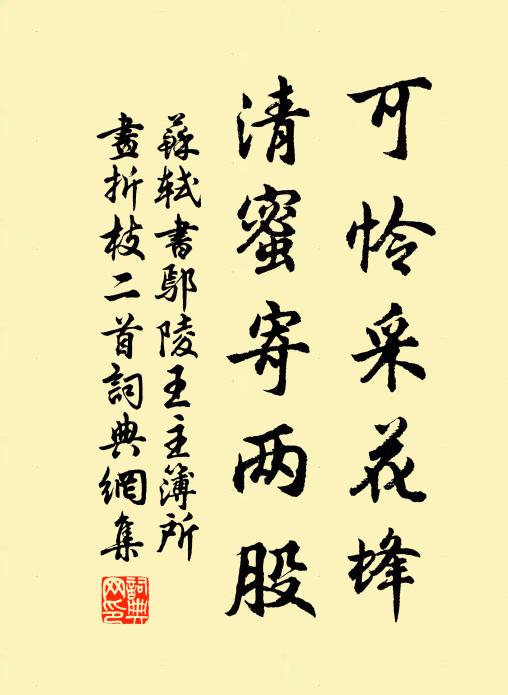 可怜采花蜂
清蜜寄两股
蘇轼書鄢陵王主簿所
畫折枝二首詞典網集
詞典網印